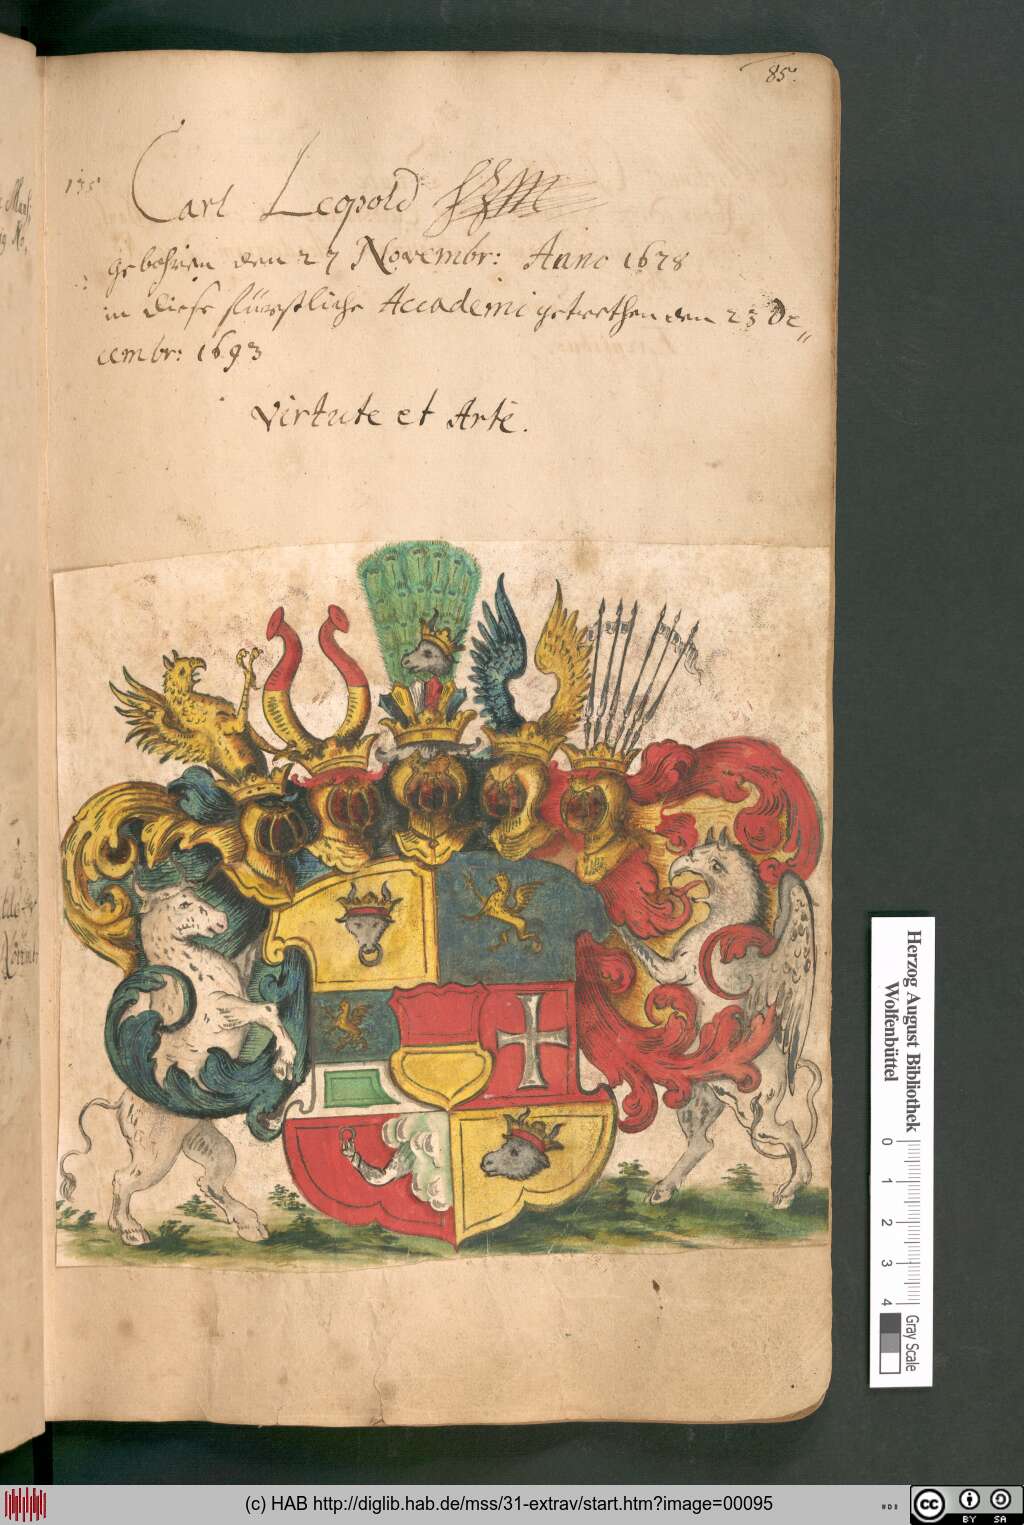 85.
135
Carl Leopold HZM
gebohren den 27 Novembr: Anno 1678
in diese fürstliche Accademi getrethen den 23 De„
cembr: 1693
Virtute et Arte.
Herzog August Bibliothek
Wolfenbüttel
0 1 2 3 4
Gray Scale
(c) HAB http://diglib.hab.de/mss/31-extrav/start.htm?image=00095
cc BY SA